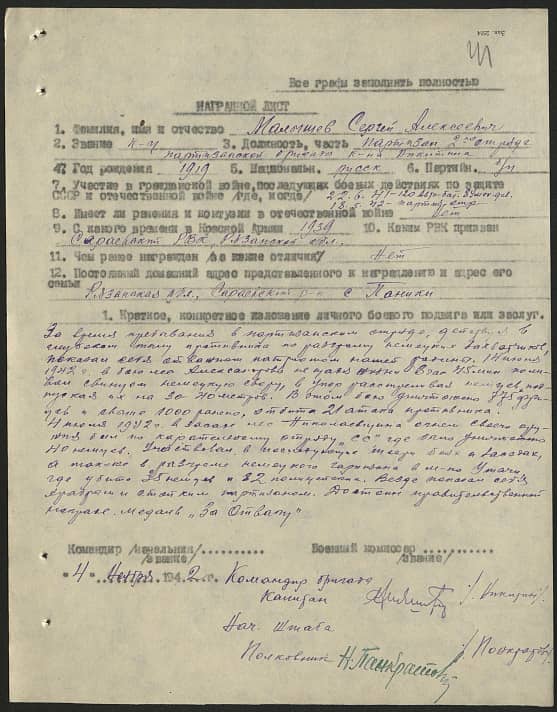 Все графы заполнять полностью
НАГРАДНОЙ ЛИСТ
1. Фамилия, имя и отчество Малышев Сергей Алексеевич
2. Звание к-ц 3. Должность, часть партизан 2го отряда
партизанской бригады к-на Никитина
4. Год рождения 1919 5. Национальн. русск 6. Партийн. б/п
7. Участие в гражданской войне, последующих боевых действиях по защите
СССР и отечественной войне /где, когда/ 22.6.41-
18.5.42- партиз. отр
8. Имеет ли ранения и контузии в отечественной войне Нет
9. С какого времени в Красной Армии 1939 10. Каким РВК призван
Сараевский РВК, Рязанской обл.
11. Чем ранее награжден /за какие отличия/ Нет
12. Постоянный домашний адрес представленного к награждению и адрес его
семьи
Рязанская обл., Сараевский р-н с Паники
1. Краткое, конкретное изложение личного боевого подвига или заслуг.
За время пребывания в партизанском отряде, действуя в
глубоком тылу противника по разгрому немецких захватчиков,
показал себя отважным патриотом нашей родины. 14 июня
1942 г. в бою лес Александрова не щадя жизни 8 час 45 мин поли-
вал свинцом немецкую свору, в упор расстреливая немцев, под-
пуская их на 30-40 метров. В этом бою уничтожено 375 фри-
цев и свыше 1000 ранено, отбита 21 атака противника.
4 июля 1942 г. в засаде лес Николаевщина огнем своего ору-
жия бил по карательному отряду "СС" где было уничтожено
40 немцев. Участвовал в последующих боях и засадах,
а также в разгроме немецкого гарнизона в м-ко Ушачи,
где убито 35 немцев и 32 полицейских. Везде показал себя
храбрым и стойким партизаном. Достоин правительственной
награды медаль „За Отвагу"
Командир /начальник/.......... Военный комиссар ...........
/звание/ /звание/
"4" Ноября 1942 г. Командир бригады
Капитан /Никитин/
Нач. Штаба
Полковник Н. Панкратов